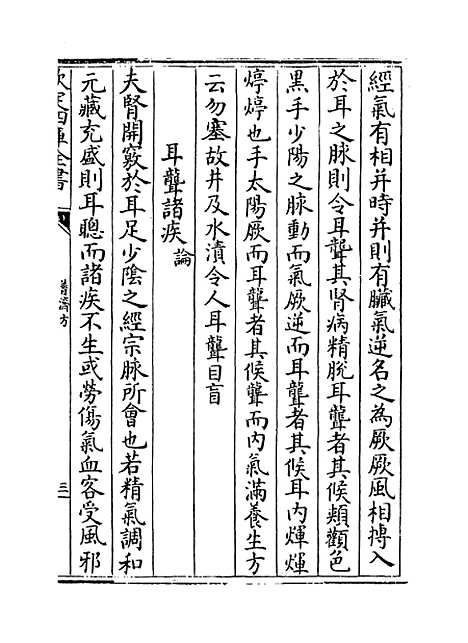 經氣有相并時并則有臟氣逆名之為厥厥風相搏入
於耳之脉則令耳聾其腎病精脫耳聾者其候頰顴色
黑手少陽之脉動而氣厥逆而耳聾者其候耳内煇煇
焞焞也手太陽厥而耳聾者其候聾而内氣滿養生方
云勿塞故井及水瀆令人耳聾目盲
耳聾諸疾論
夫腎開竅於耳足少陰之經宗脉所會也若精氣調和
元藏充盛則耳聰而諸疾不生或勞傷氣血客受風邪
欽定四庫全書
普濟方
三